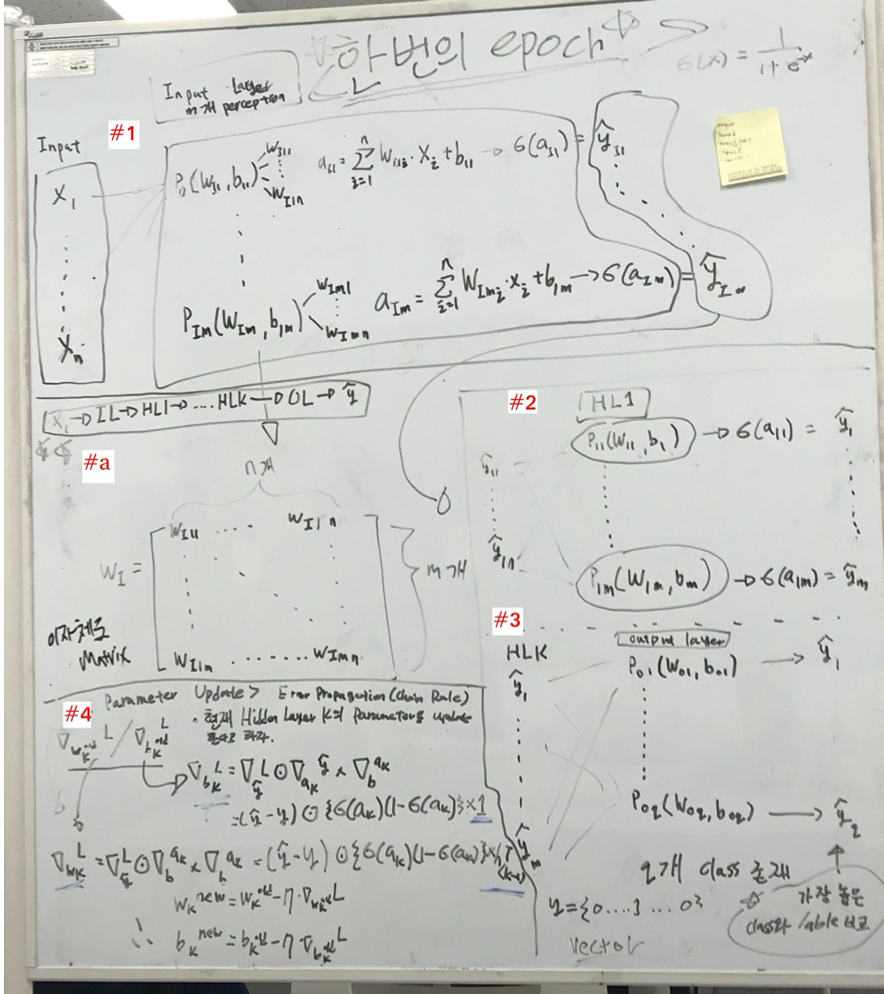 한번의 epoch
σ(x) = 1/(1+e^-x)
Input Layer
m개 perceptron
#1
Input
X₁
Xₙ
W_I11
W_I1n
a_I1 = Σ_{i=1}^{n} W_I1i · X_i + b_11 → σ(a_I1) = ŷ_I1
P_Im(W_Im, b_Im)
W_Im1
W_Imn
a_Im = Σ_{i=1}^{n} W_Imi · X_i + b_Im → σ(a_Im) = ŷ_Im
X₁ → IL → HL1 → .... HLK → OL → ŷ
#a
n개
W_I =
W_I11 .... W_I1n
m개
W_I1m ....... W_Imn
이 자체로
Matrix
#2
HL1
P_11(W_11, b_1) → σ(a_11) = ŷ_1
ŷ_11
ŷ_1n
P_1m(W_1m, b_m) → σ(a_1m) = ŷ_m
#3
HLK
output layer
P_O1(W_O1, b_O1) → ŷ_1
ŷ_1
ŷ_m
P_Oq(W_Oq, b_Oq) → ŷ_q
q개 class 존재
y = {0....1...0}
vector
가장 높은
class와 lable 비교
#4
Parameter Update > Error Propagation (Chain Rule)
. 현재 Hidden Layer K의 Parameter를 update
한다고 하자.
∇_{W_K^old} L / ∇_{b_K^old} L
∇_{b_K} L = ∇_ŷ L ⊙ ∇_{a_K} ŷ × ∇_b a_K
= (ŷ-y) ⊙ {σ(a_K)(1-σ(a_K)} × 1
∇_{W_K} L = ∇_ŷ L ⊙ ∇_b a_K × ∇_b a_K = (ŷ-y) ⊙ {σ(a_K)(1-σ(a_K)} × ŷ^T_(k-1)
W_K^new = W_K^old - η · ∇_{W_K^old} L
∴ b_K^new = b_K^old - η · ∇_{b_K^old} L